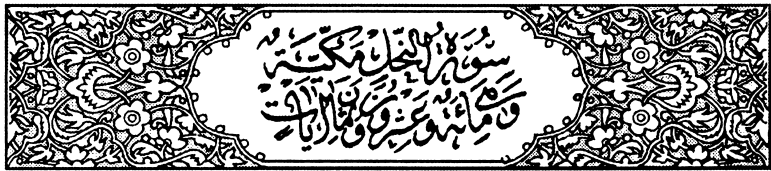 سُورَةُ النَّحْلِ مَكِّيَّةٌ
وَهِيَ مِائَةٌ وَعِشْرُونَ وَثَمَانِ آيَاتٍ